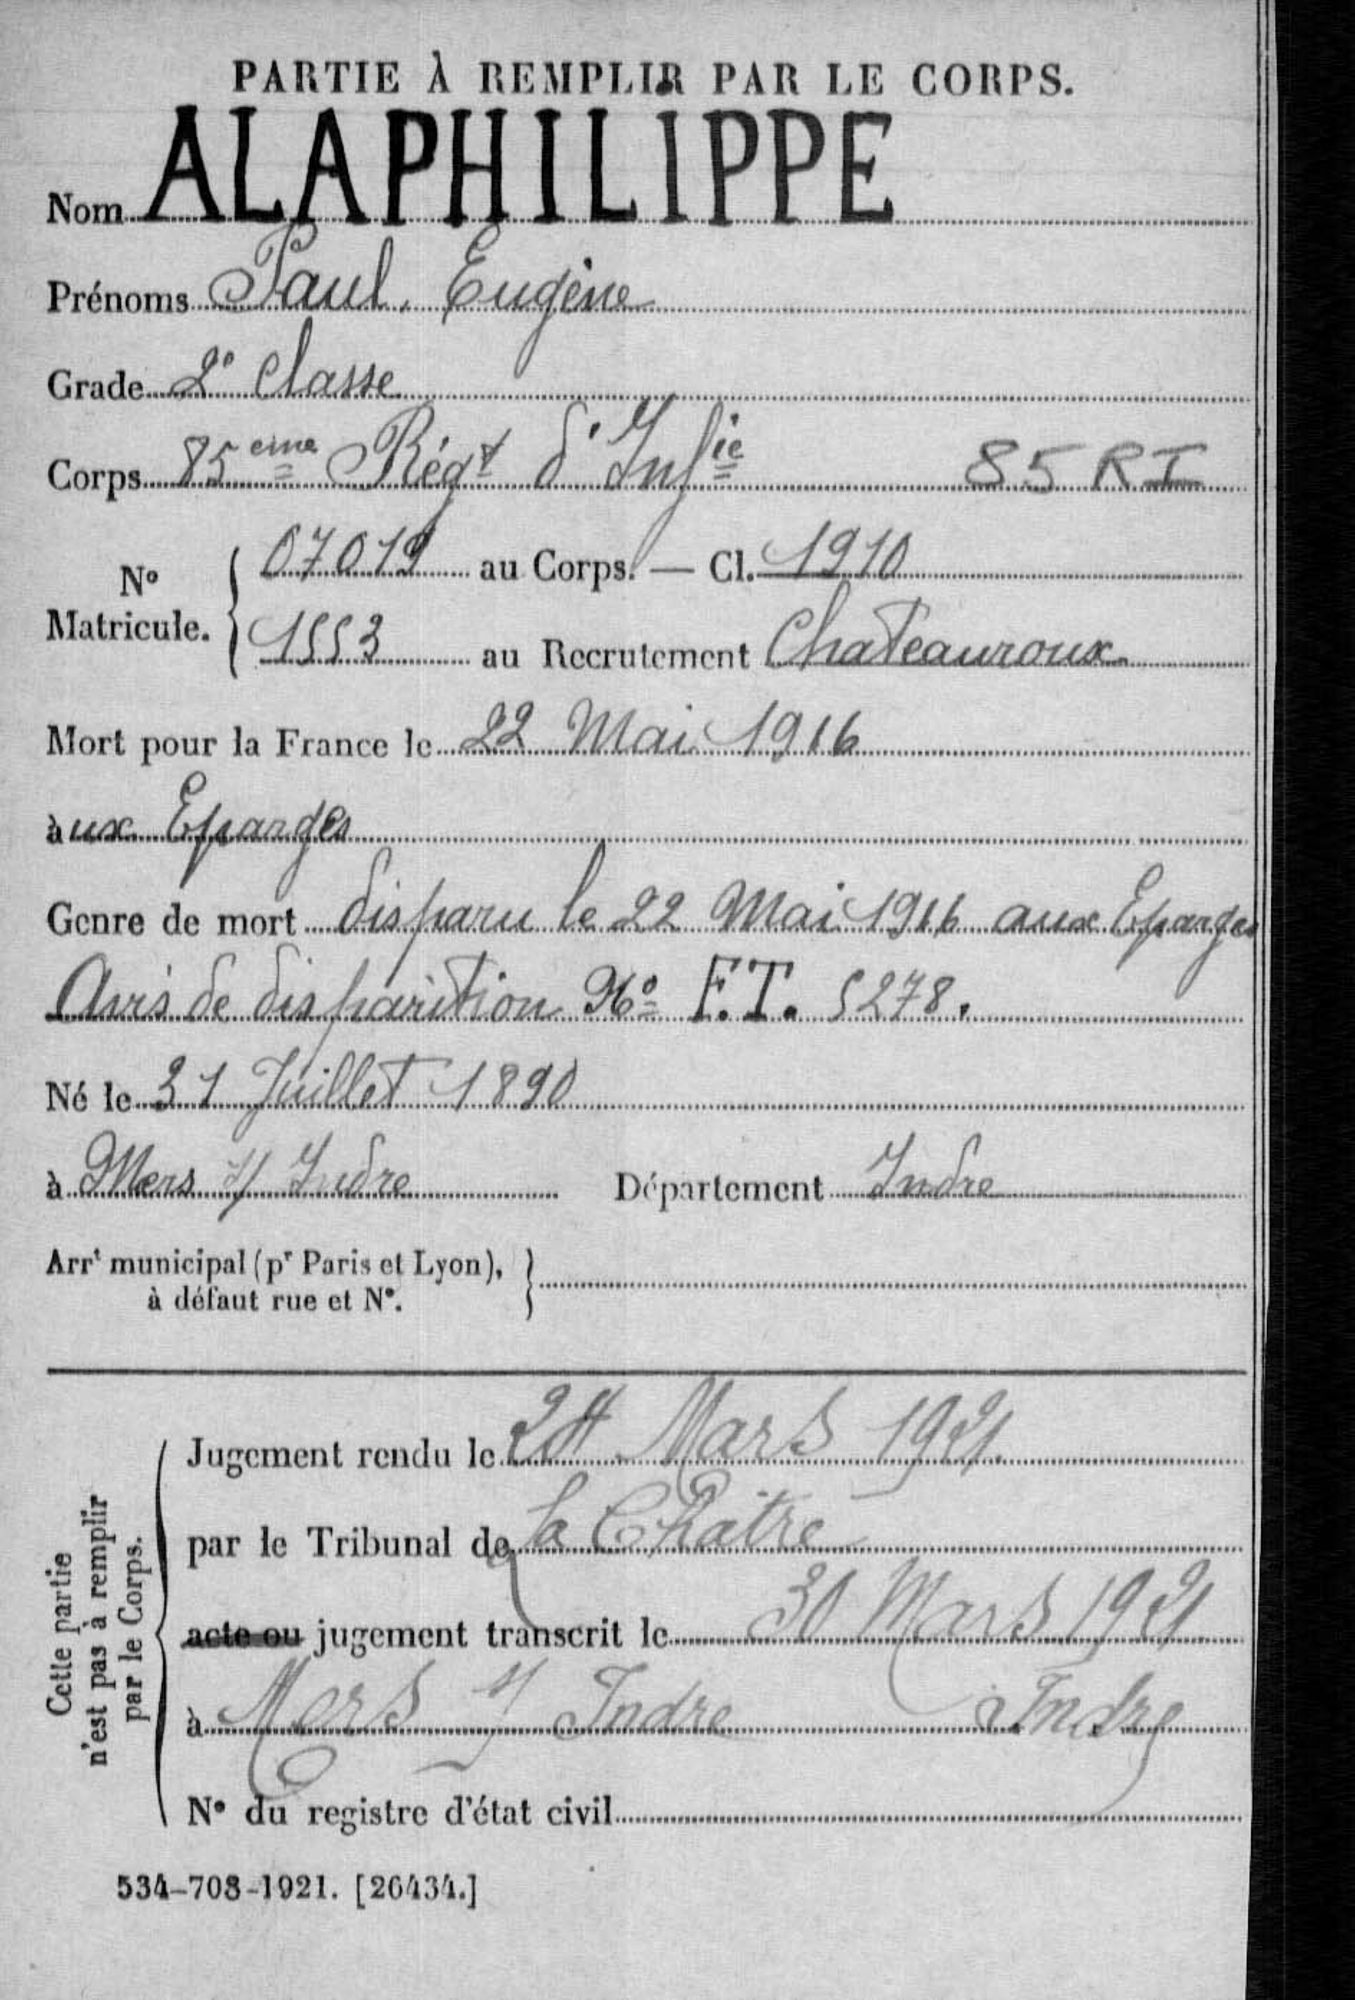 PARTIE À REMPLIR PAR LE CORPS.
Nom ALAPHILIPPE
Prénoms Paul, Eugène
Grade 2e Classe
Corps 85eme Régt d'Infie 85 RI
No Matricule. { 07019 au Corps. — Cl. 1910
1553 au Recrutement Chateauroux
Mort pour la France le 22 Mai 1916
aux Eparges
Genre de mort disparu le 22 Mai 1916 aux Eparges
Avis de disparition No F.T. 5278.
Né le 31 Juillet 1890
à Mers s/ Indre Département Indre
Arrt municipal (pr Paris et Lyon),
à défaut rue et No. }
Cette partie
n'est pas à remplir
par le Corps.
Jugement rendu le 24 Mars 1921.
par le Tribunal de la Châtre
acte ou jugement transcrit le 30 Mars 1921
à Mers s/ Indre Indre
No du registre d'état civil
534-708-1921. [26434.]